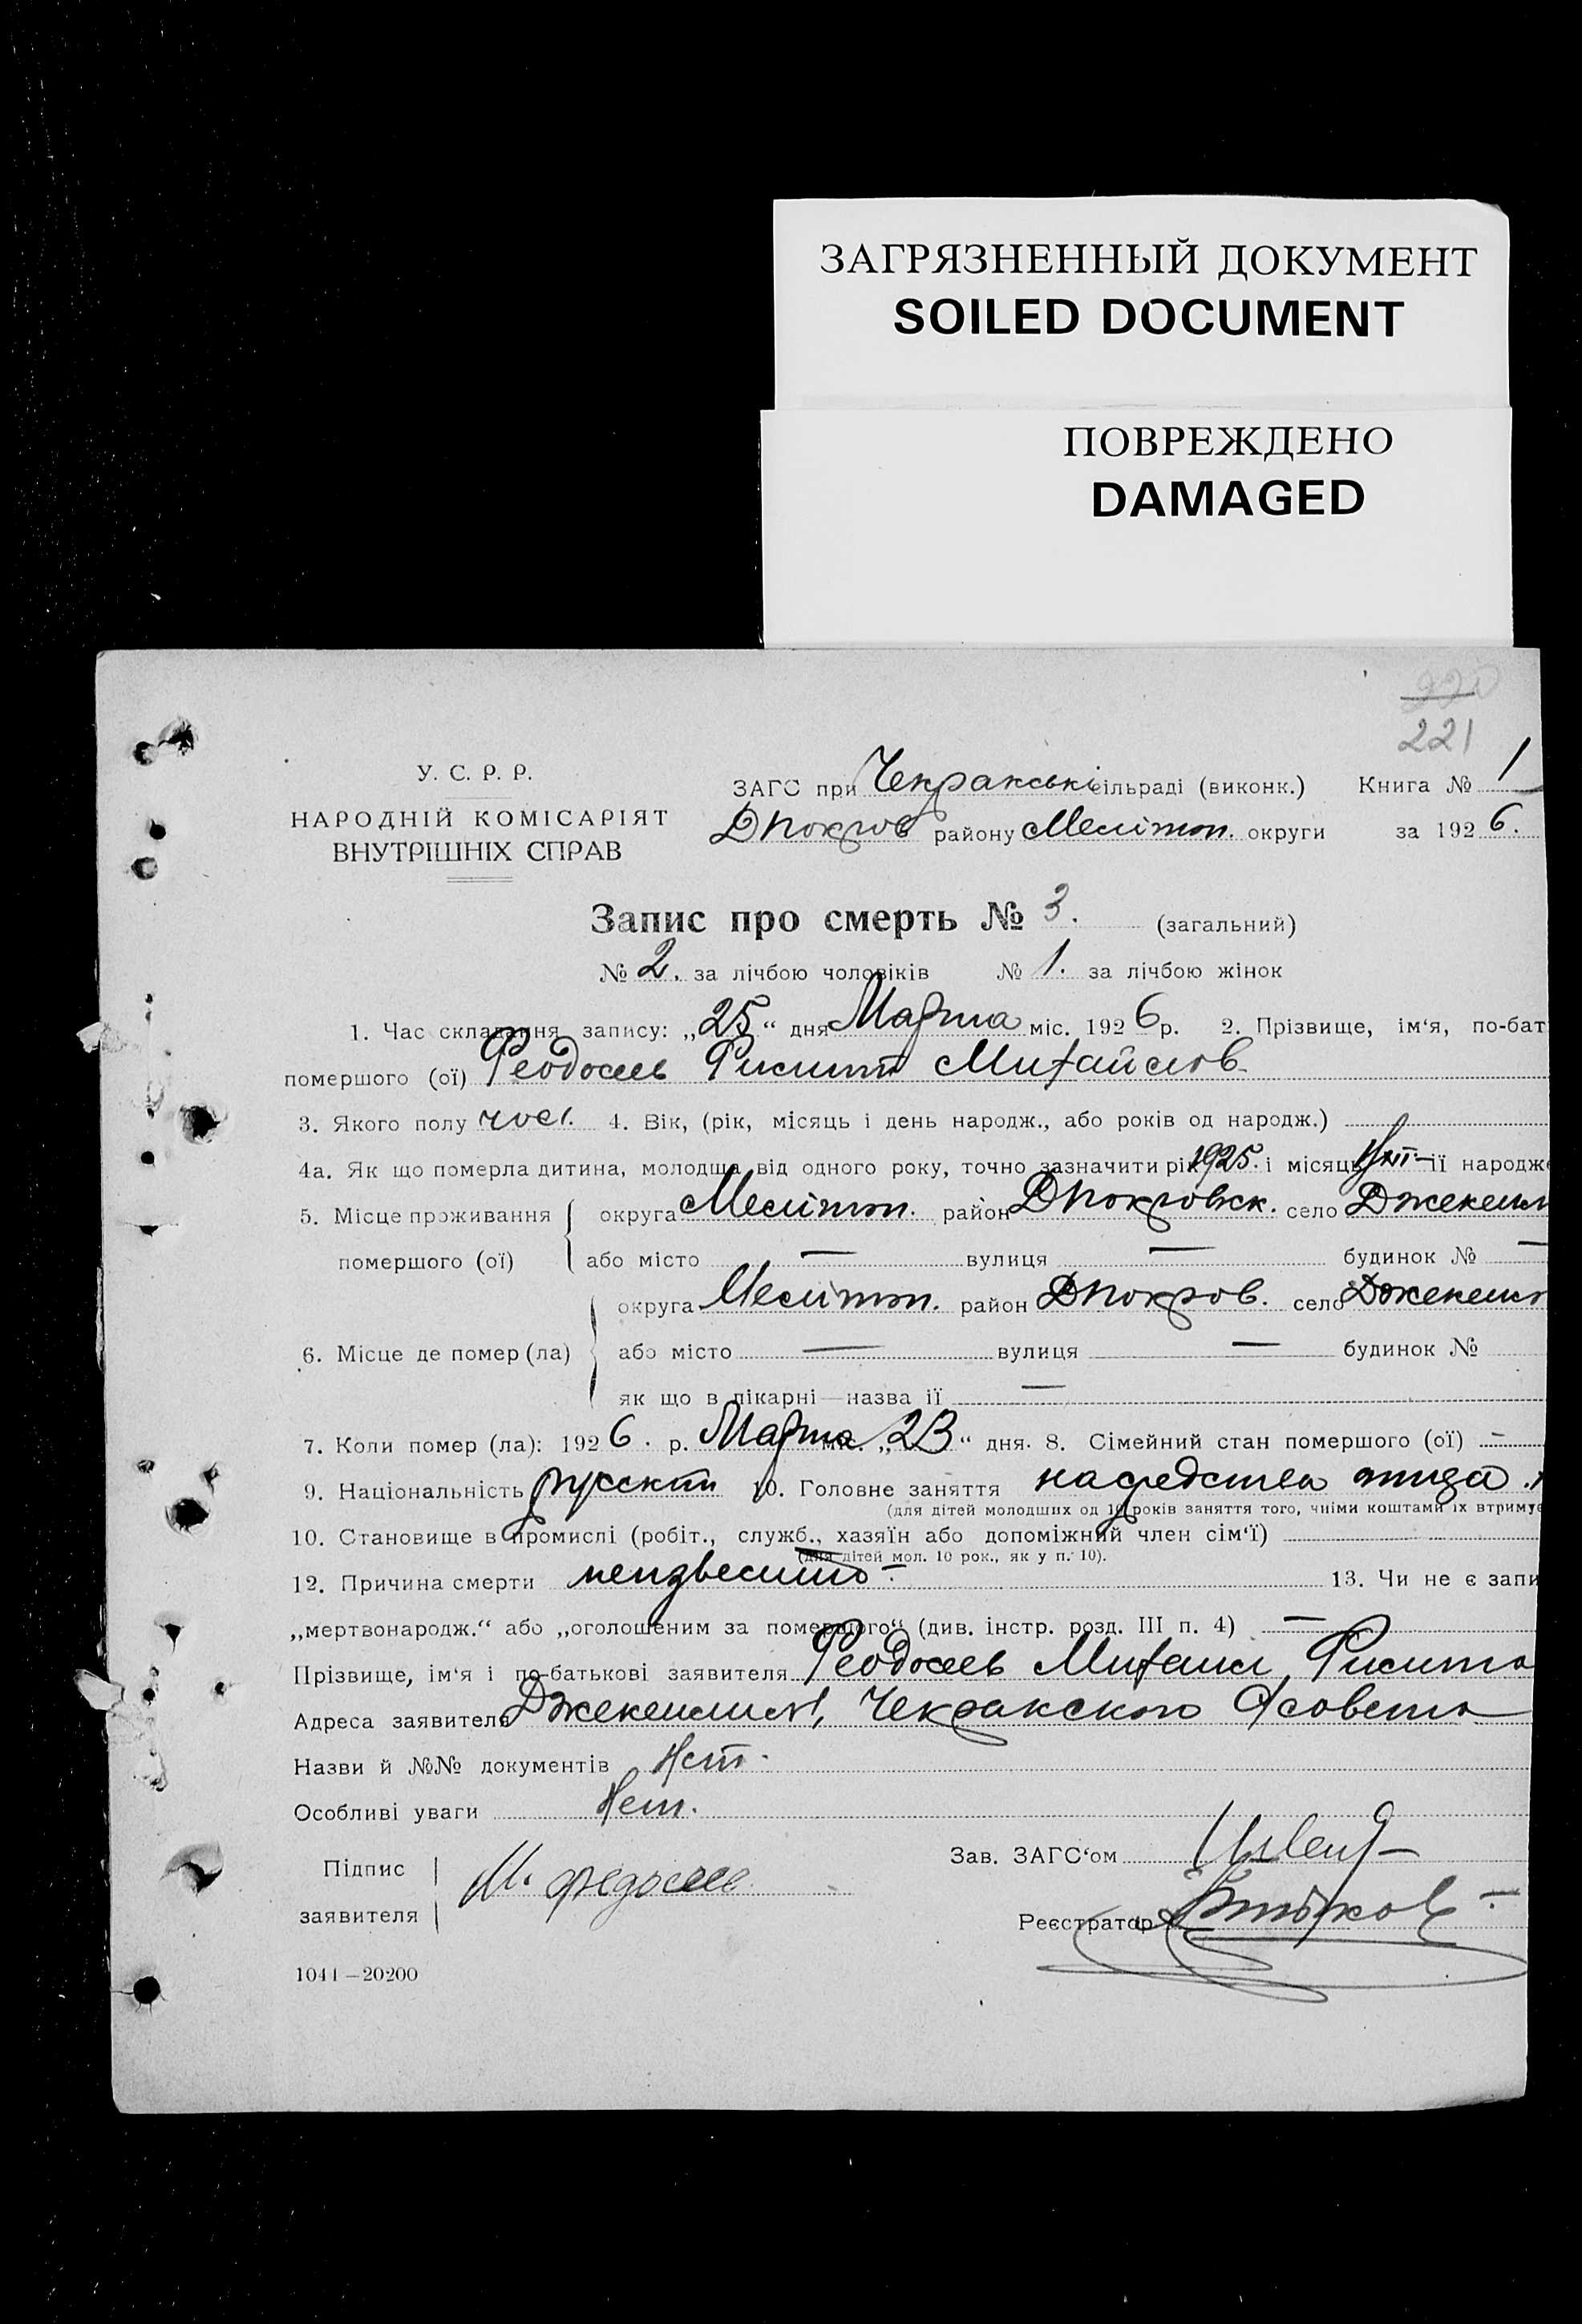 ЗАГРЯЗНЕННЫЙ ДОКУМЕНТ
SOILED DOCUMENT
ПОВРЕЖДЕНО
DAMAGED
220
221
У. С. Р. Р.
НАРОДНІЙ КОМІСАРІЯТ
ВНУТРІШНІХ СПРАВ
ЗАГС при Чекракські сільраді (виконк.) Книга № 1
Дпокров району Меліtоп. округи за 1926.
Запис про смерть № 3. (загальний)
№ 2. за лічбою чоловіків № 1. за лічбою жінок
1. Час складання запису: „25“ дня Марта міс. 1926 р. 2. Прізвище, ім‘я, по-бат
помершого (ої) Феодосев Филипп Михайлов
3. Якого полу чол. 4. Вік, (рік, місяць і день народж., або років од народж.)
4а. Як що померла дитина, молодша від одного року, точно зазначити рік 1925. і місяць її народже
5. Місце проживання округа Меліtоп. район Дпокровск. село
помершого (ої) або місто — вулиця — будинок № —
округа Меліtоп. район Дпокров. село
6. Місце де помер (ла) або місто — вулиця — будинок №
як що в лікарні—назва ії —
7. Коли помер (ла): 1926. р. Марта міс. „23“ дня. 8. Сімейний стан помершого (ої) —
9. Національність русскій 10. Головне заняття на средства отца
(для дітей молодших од 10 років заняття того, чиїми коштами їх втримує
10. Становище в промислі (робіт., служб., хазяїн або допоміжний член сім‘ї)
(для дітей мол. 10 рок., як у п. 10).
12. Причина смерти неизвестно — 13. Чи не є запи
„мертвонародж.“ або „оголошеним за помершого“ (див. інстр. розд. III п. 4) —
Прізвище, ім‘я і по-батькові заявителя Феодосев Михаил Филиппо
Адреса заявителя Чекракского С/совета
Назви й №№ документів Нет.
Особливі уваги Нет.
Підпис
заявителя М. Федосеев
Зав. ЗАГС‘ом
Реєстратор
1044—20200